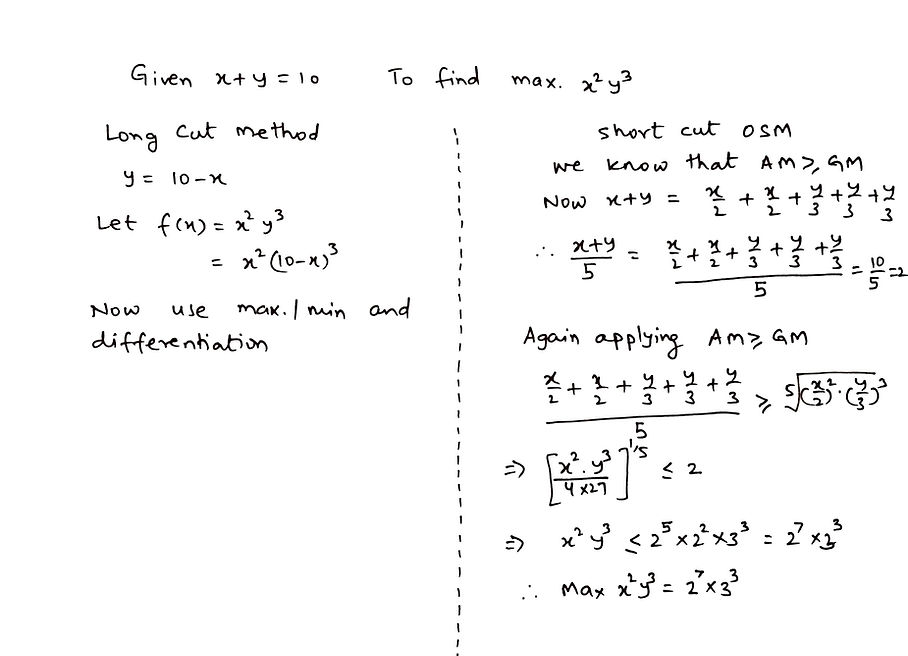 Given x+y=10 To find max. x²y³
Long Cut method
y = 10-x
Let f(x) = x² y³
= x²(10-x)³
Now use max./min and
differentiation
short cut OSM
we know that AM ≥ GM
Now x+y = x/2 + x/2 + y/3 + y/3 + y/3
∴ (x+y)/5 = (x/2 + x/2 + y/3 + y/3 + y/3)/5 = 10/5 = 2
Again applying AM ≥ GM
(x/2 + x/2 + y/3 + y/3 + y/3)/5 ≥ ⁵√((x/2)² · (y/3)³)
⇒ [x² · y³/(4×27)]^(1/5) ≤ 2
⇒ x² y³ ≤ 2⁵ × 2² × 3³ = 2⁷ × 3³
∴ Max x²y³ = 2⁷ × 3³